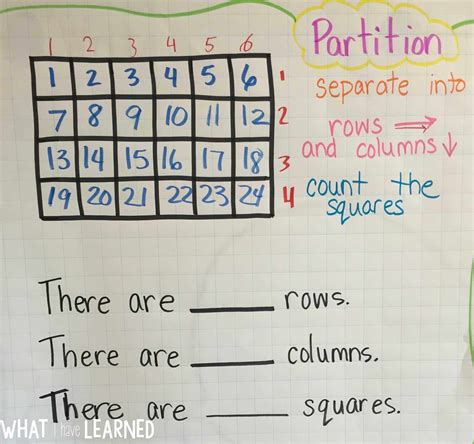 1 2 3 4 5 6
Partition
1 2 3 4 5 6 1
separate into
7 8 9 10 11 12 2
rows →
and columns ↓
13 14 15 16 17 18 3
count the
19 20 21 22 23 24 4
squares
There are ____ rows.
There are ____ columns.
There are ____ squares.
WHAT I have LEARNED